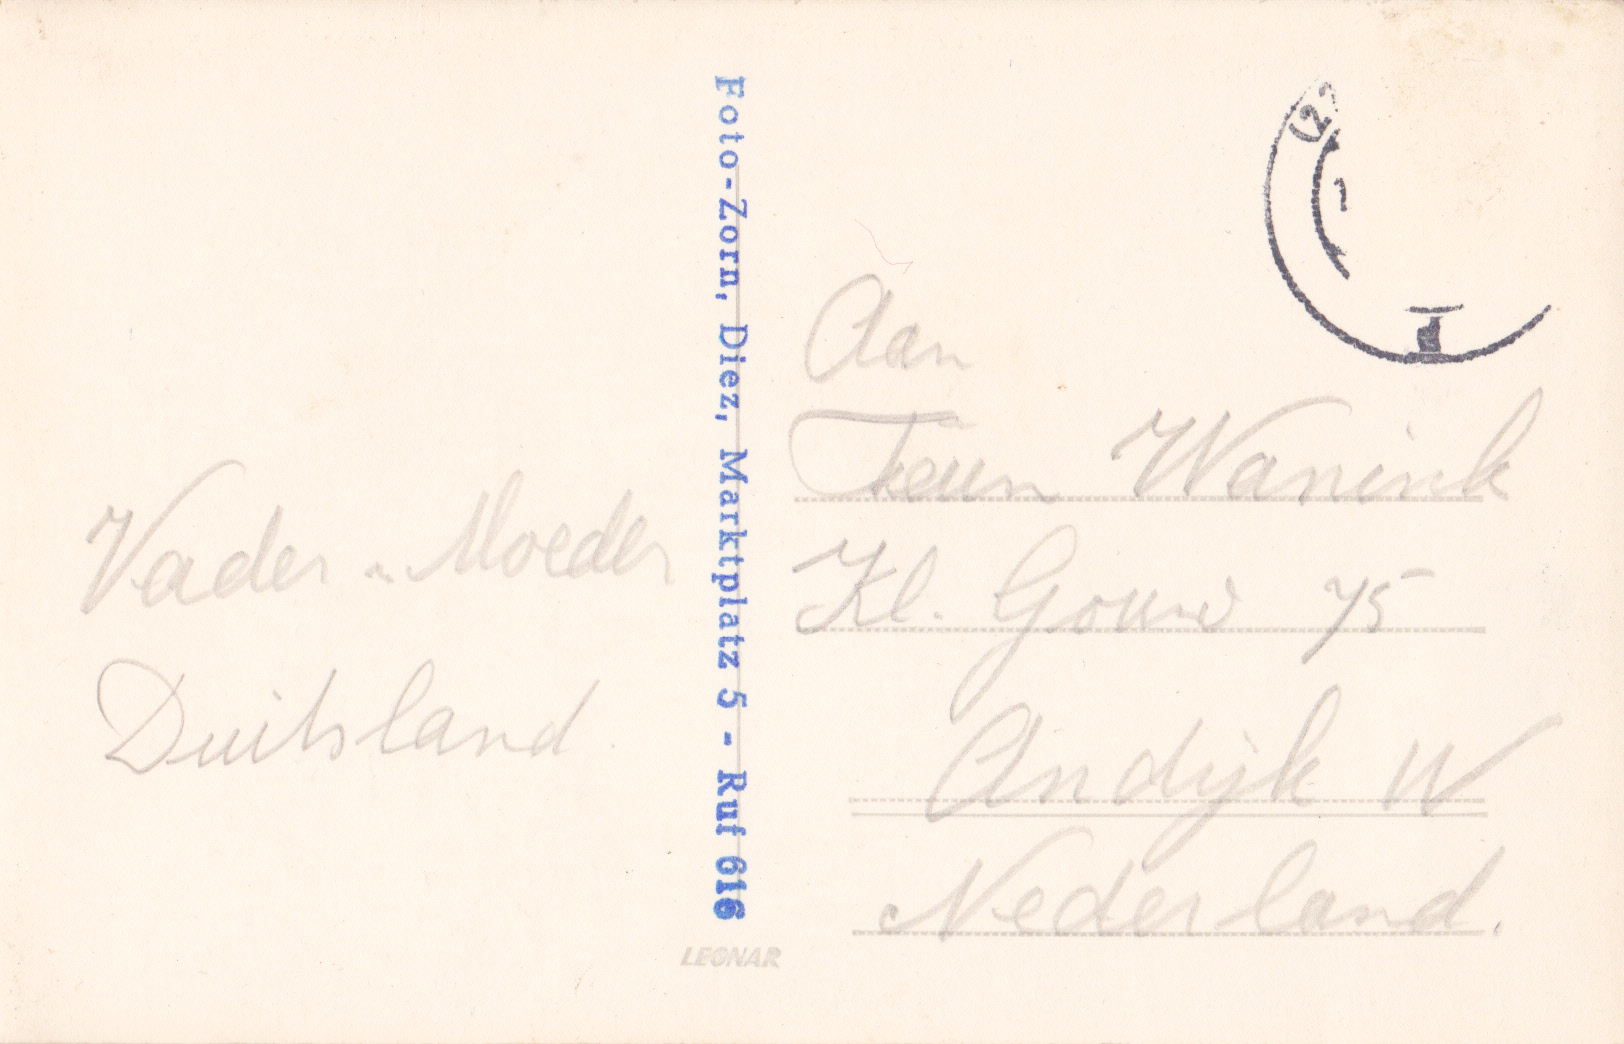 Vader. Moeder
Duitsland.
Foto-Zorn, Diez, Marktplatz 5 - Ruf 616
LEONAR
(22
Aan
Teun Wanink
Kl. Gouw 75
Andijk W
Nederland.